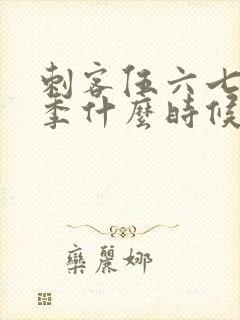 刺客伍六七
季什麼時候
欒麗娜